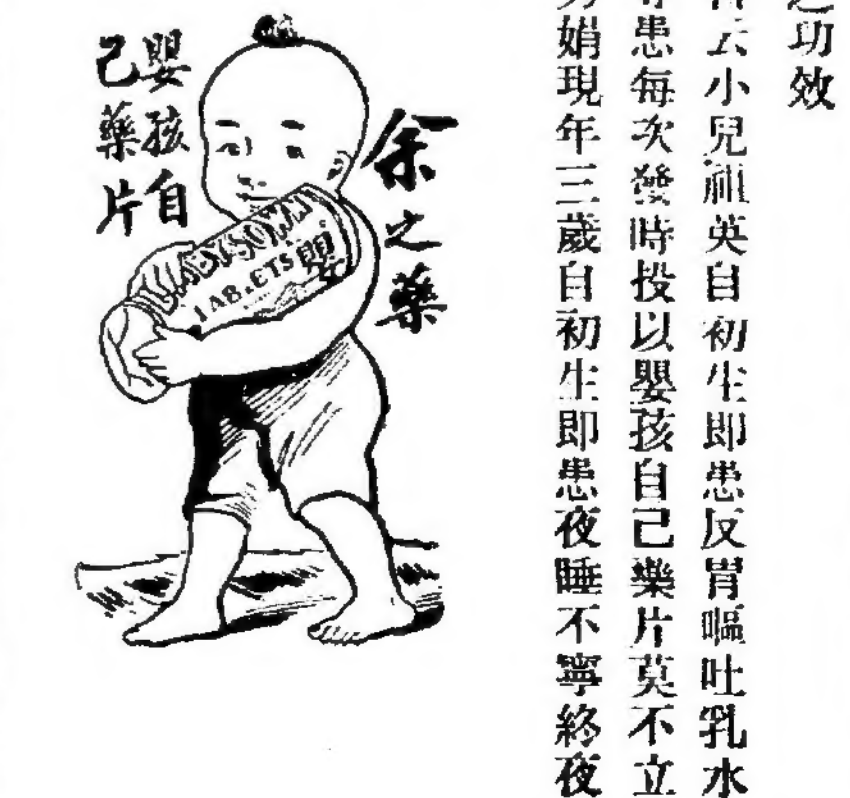 之功效
云小兒祖英自初生即患反胃嘔吐乳水
患每次發時投以嬰孩自己藥片莫不立
娟現年三歲自初生即患夜睡不寧終夜
余之藥
嬰孩自
己藥片
BABY'S OWN
TABLETS
嬰